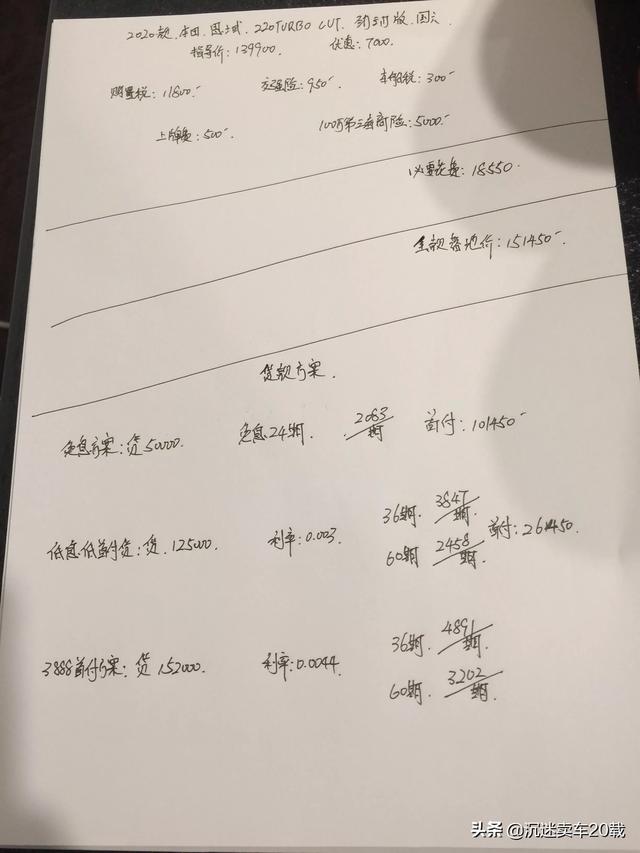 2020款 本田 思域 220TURBO CVT 劲动版 国六
指导价:139900 优惠:7000
购置税:11800 交强险:950 车船税:300
上牌费:500 100万第三者商险:5000
必要花费:18550
全款落地价:151450
贷款方案
免息方案:贷50000 免息24期 2083/期 首付:101450
低息低首付贷:贷125000 利率:0.003 36期 3847/期 首付:26450
60期 2458/期
3888首付方案:贷152000 利率:0.0044 36期 4891/期
60期 3202/期
头条 @沉迷卖车20载